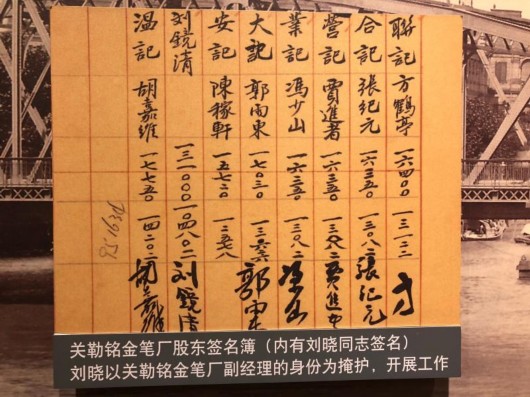 聯記 方鶴亭 一六四〇〇 一三一二二
合記 張紀元 一六三〥〇 一三〇八二 張紀元
營記 賈進者 一六三〥〇 一三〇八二
業記 馮少山 一六三〥〇 一三〇八二
大記 郭雨東 一七〇三〇 郭雨東
安記 陳稼軒 一〥七二〇 一二〥七八
劉鏡清 一三一〇〇〇 一〇四八〇二 劉鏡清
溫記 胡嘉維 一七七〥〇 一四二〇二 胡嘉維
关勒铭金笔厂股东签名簿（内有刘晓同志签名）
刘晓以关勒铭金笔厂副经理的身份为掩护，开展工作